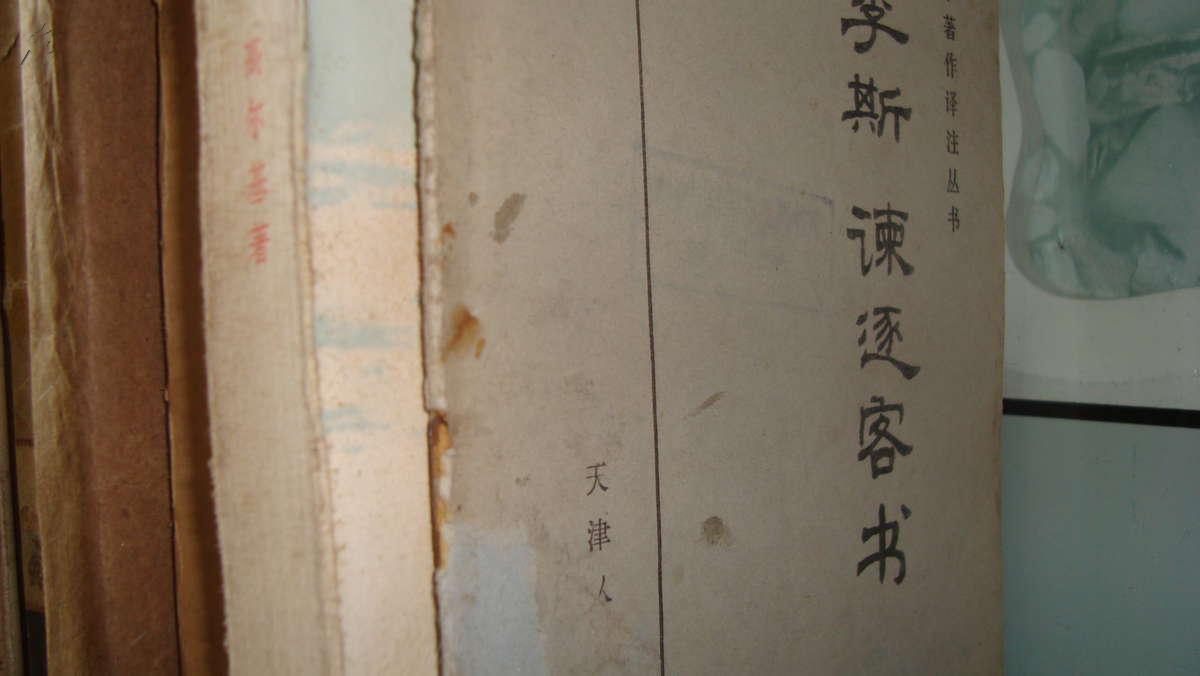 著作译注丛书
李斯 谏逐客书
天津人
尔
著